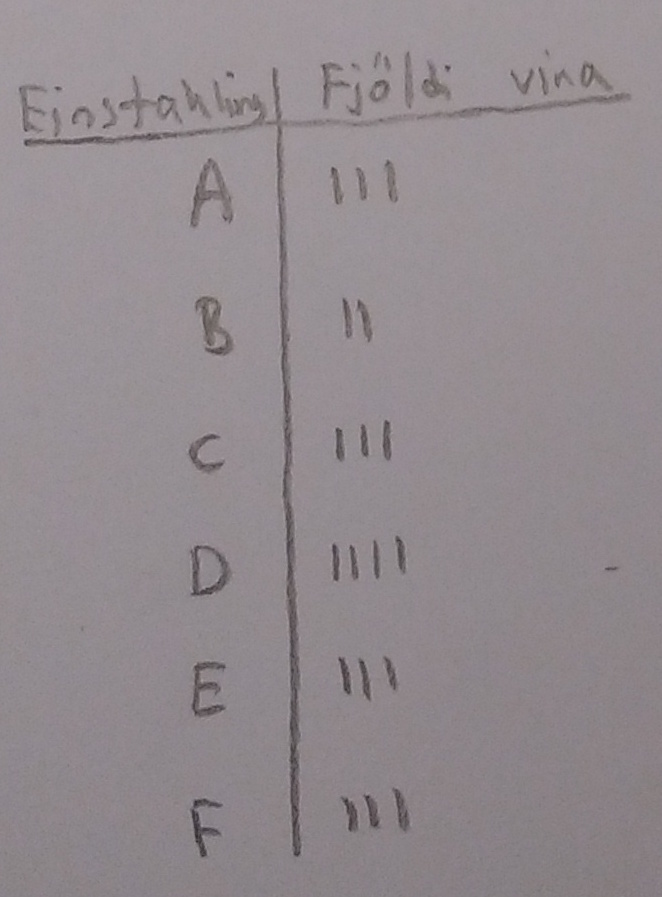 Einstakling Fjöldi vina
A III
B II
C III
D IIII
E III
F III